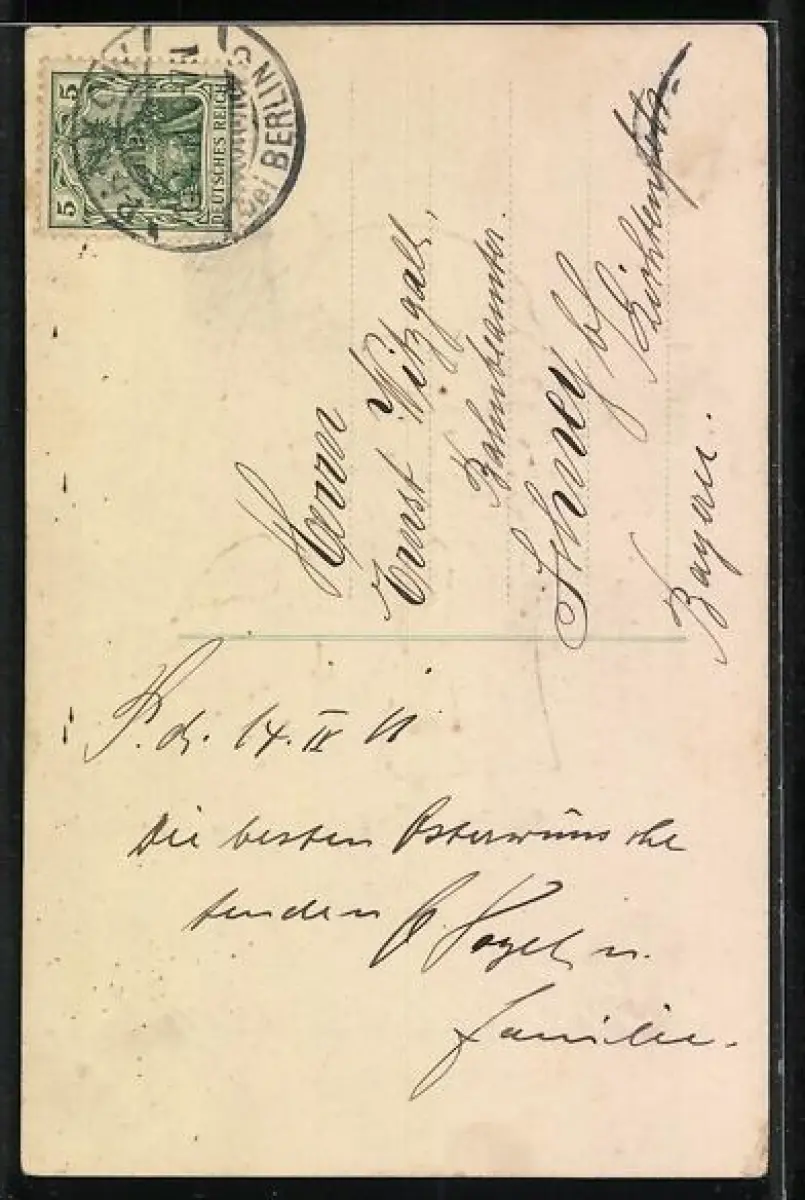 5 5
DEUTSCHES REICH
bei BERLIN
Herrn
Ernst Witzgall,
Bahnbeamter.
Schney b/
Lichtenfels
Bayern.
P. d. 14. IV 11
Die besten Osterwünsche
senden G. Vogel u.
Familie.